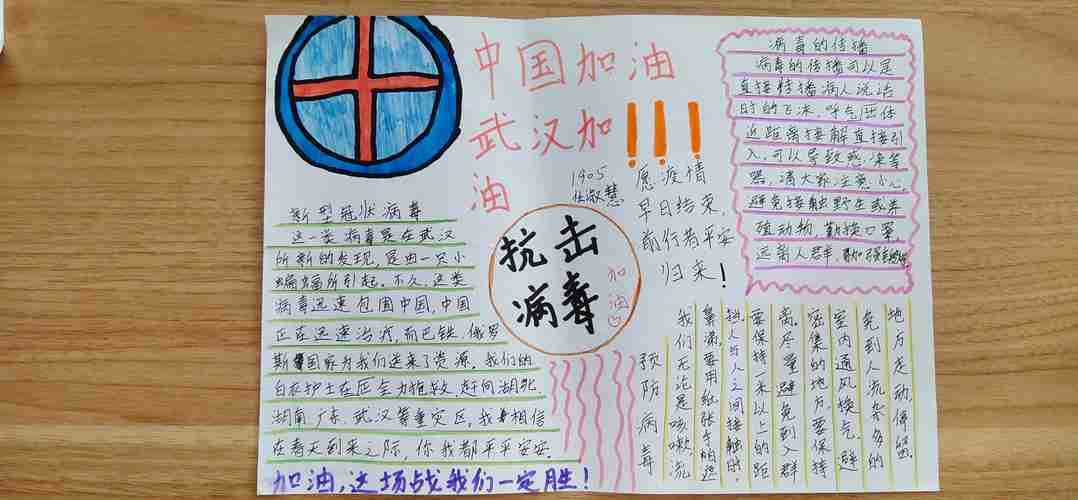 中国加油
武汉加!!!
油
1905
任淑慧
愿疫情
早日结束,
前行者平安
归来!
抗击
病毒
加油
新型冠状病毒
这一类病毒是在武汉
所新的发现,是由一只小
蝙蝠所引起。不久,这类
病毒迅速包围中国,中国
正在迅速治疗,而巴铁、俄罗
斯国家为我们送来了资源,我们的
白衣护士在全力抢救,赶向湖北、
湖南、广东、武汉等重灾区,我相信
在春天到来之际,你我都平平安安。
加油,这场战我们一定胜!
病毒的传播
病毒的传播可以是
直接传播病人说话
时的飞沫,呼气团体
近距离接解直接引
入,可以导致感染等
器,请大家注意,小心,
避免接触野生或养
殖动物,勤换口罩,
远离人群,
预防病毒
我们无论是咳嗽、流
鼻涕,要用纸张手帕遮
挡,人与人之间接触时,
要保持一米以上的距
离,尽量避免到人群
密集的地方,要保持
室内通风换气,避
免到人流杂多的
地方走动,